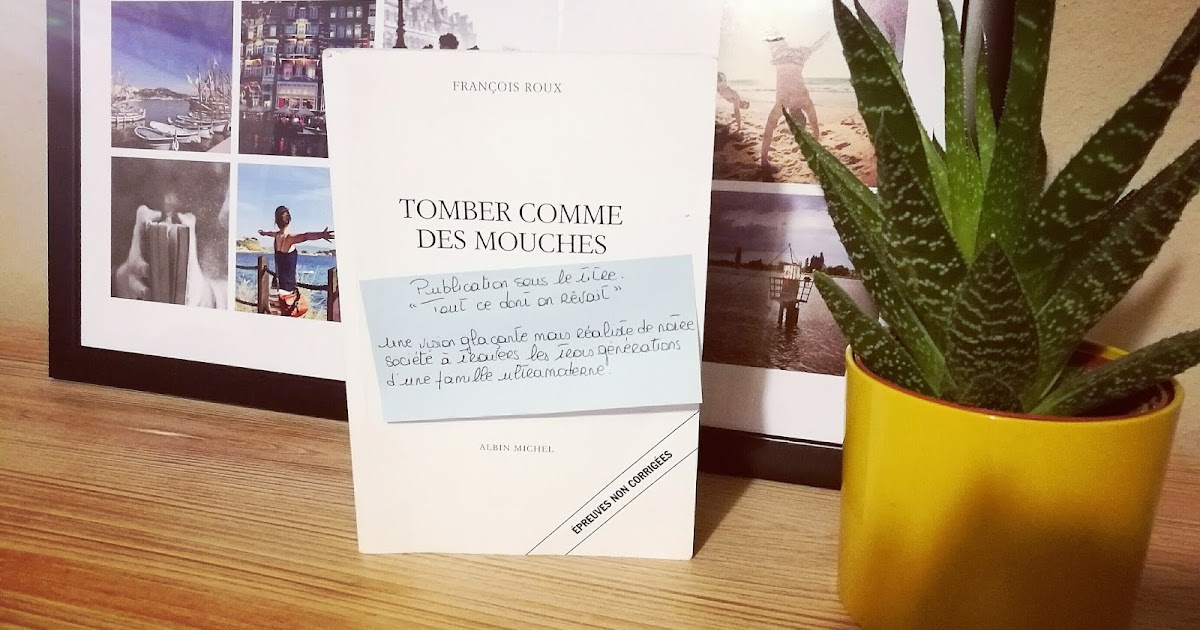 FRANÇOIS ROUX
TOMBER COMME
DES MOUCHES
Publication sous le titre :
"Tout ce dont on rêvait"
Une vision glaçante mais réaliste de notre
société à travers les trois générations
d'une famille ultramoderne.
ALBIN MICHEL
ÉPREUVES NON CORRIGÉES